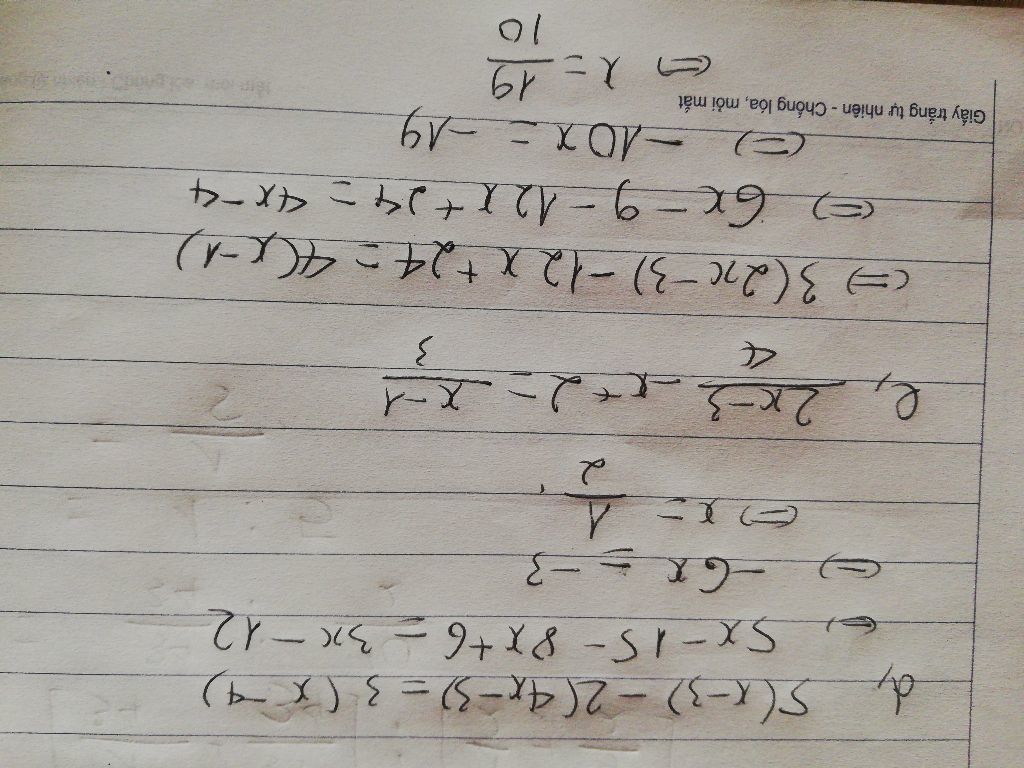 d, 5(x-3) - 2(4x-3) = 3(x-4)
⇔ 5x - 15 - 8x + 6 = 3x - 12
⇔ -6x = -3
⇔ x = 1/2
e, (2x-3)/4 - x + 2 = (x-1)/3
⇔ 3(2x-3) - 12x + 24 = 4(x-1)
⇔ 6x - 9 - 12x + 24 = 4x - 4
⇔ -10x = -19
⇔ x = 19/10
Giấy trắng tự nhiên - Chống lóa, mỏi mắt